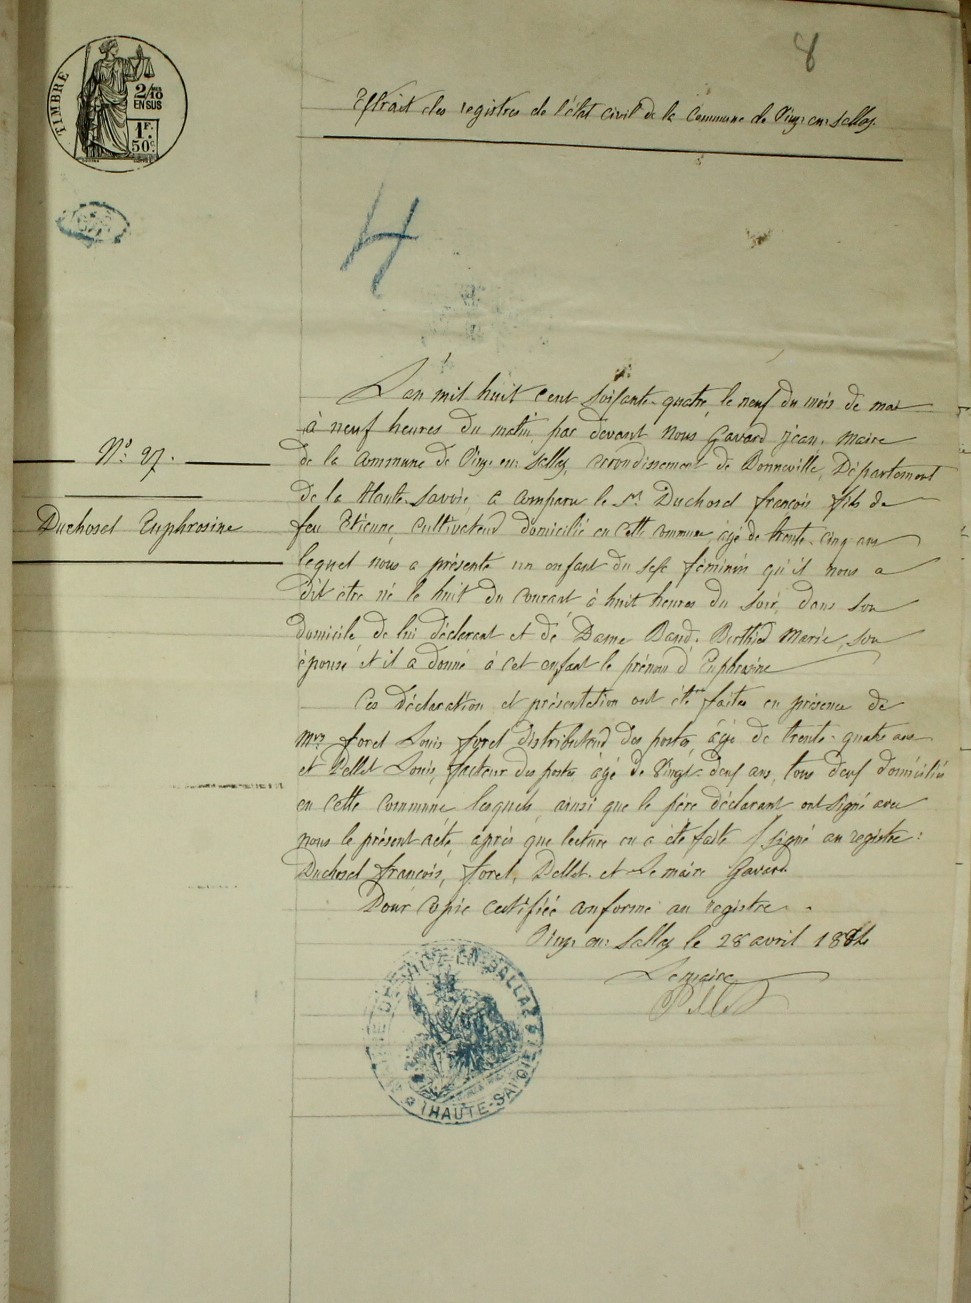 8
TIMBRE
2/10 EN SUS
1 F. 50 c.
Extrait des registres de l'état civil de la Commune de Viuz-en-Sallaz.
4
N° 27.
Duchosal Euphrosine
L'an mil huit cent soixante-quatre, le neuf du mois de mai
à neuf heures du matin, par devant Nous Gavard Jean, Maire
de la commune de Viuz-en-Sallaz, arrondissement de Bonneville, Département
de la Haute-Savoie, a comparu le Sr Duchosal françois fils de
feu Etienne, cultivateur domicilié en cette commune, âgé de trente-cinq ans
lequel nous a présenté un enfant du sexe féminin qu'il nous a
dit être né le huit du courant, à huit heures du soir, dans son
domicile de lui déclarant et de Dame Marie, son
épouse et il a donné à cet enfant le prénom d'Euphrosine
Ces déclaration et présentation ont été faites en présence de
Mrs forel Louis forel distributeur des postes, âgé de trente-quatre ans
et Pellet Louis, facteur des postes âgé de vingt-deux ans, tous deux domiciliés
en cette commune lesquels, ainsi que le père déclarant ont signé avec
nous le présent acte, après que lecture en a été faite / signé au registre:
Duchosal françois, forel, Pellet et Le maire Gavard
Pour copie certifiée conforme au registre.
Viuz-en-Sallaz le 28 avril 1884
Le maire
Pellet
MAIRIE DE VIUZ-EN-SALLAZ
(HAUTE-SAVOIE)